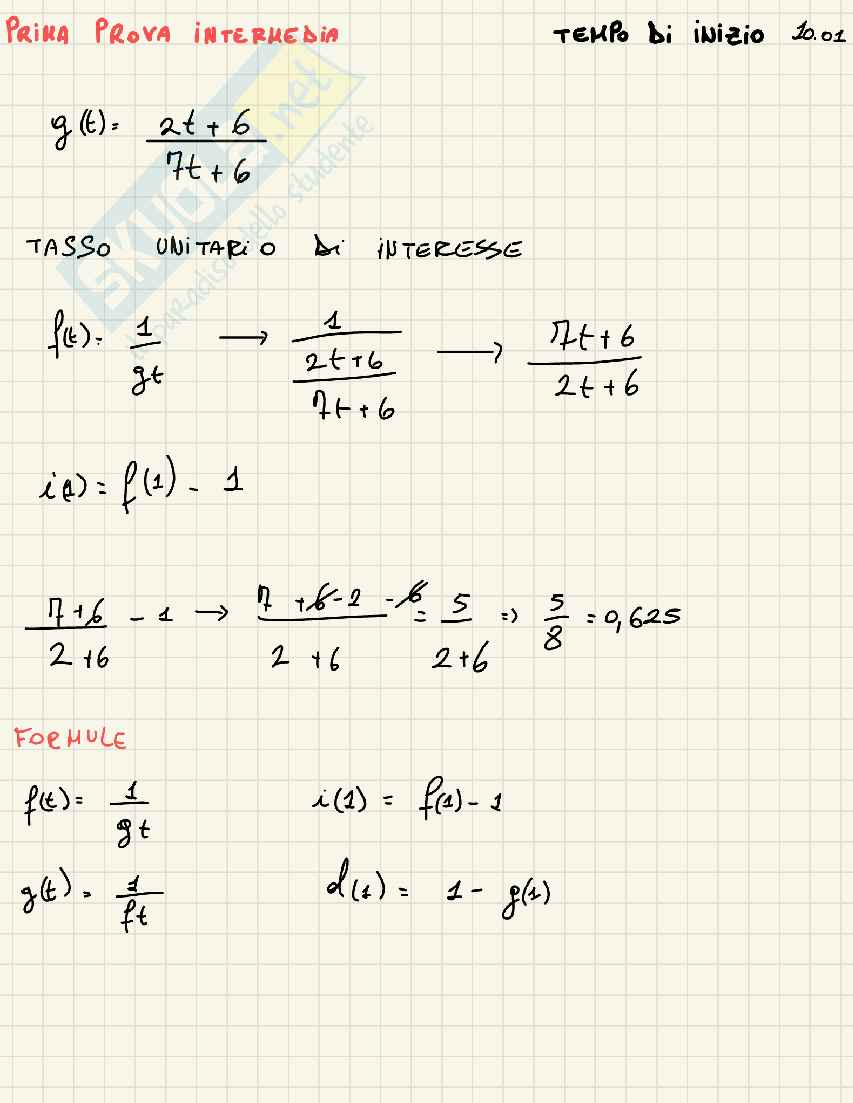 PRIMA PROVA INTERMEDIA TEMPO DI INIZIO 10.01
g(t) = (2t + 6) / (7t + 6)
SKUOLA.net
il paradiso dello studente
TASSO UNITARIO DI INTERESSE
f(t) = 1 / gt → 1 / ((2t + 6) / (7t + 6)) → (7t + 6) / (2t + 6)
i(1) = f(1) - 1
(7 + 6) / (2 + 6) - 1 → (7 + 6 - 2 - 6) / (2 + 6) = 5 / (2 + 6) => 5 / 8 = 0,625
FORMULE
f(t) = 1 / gt i(1) = f(1) - 1
g(t) = 1 / ft d(1) = 1 - g(1)